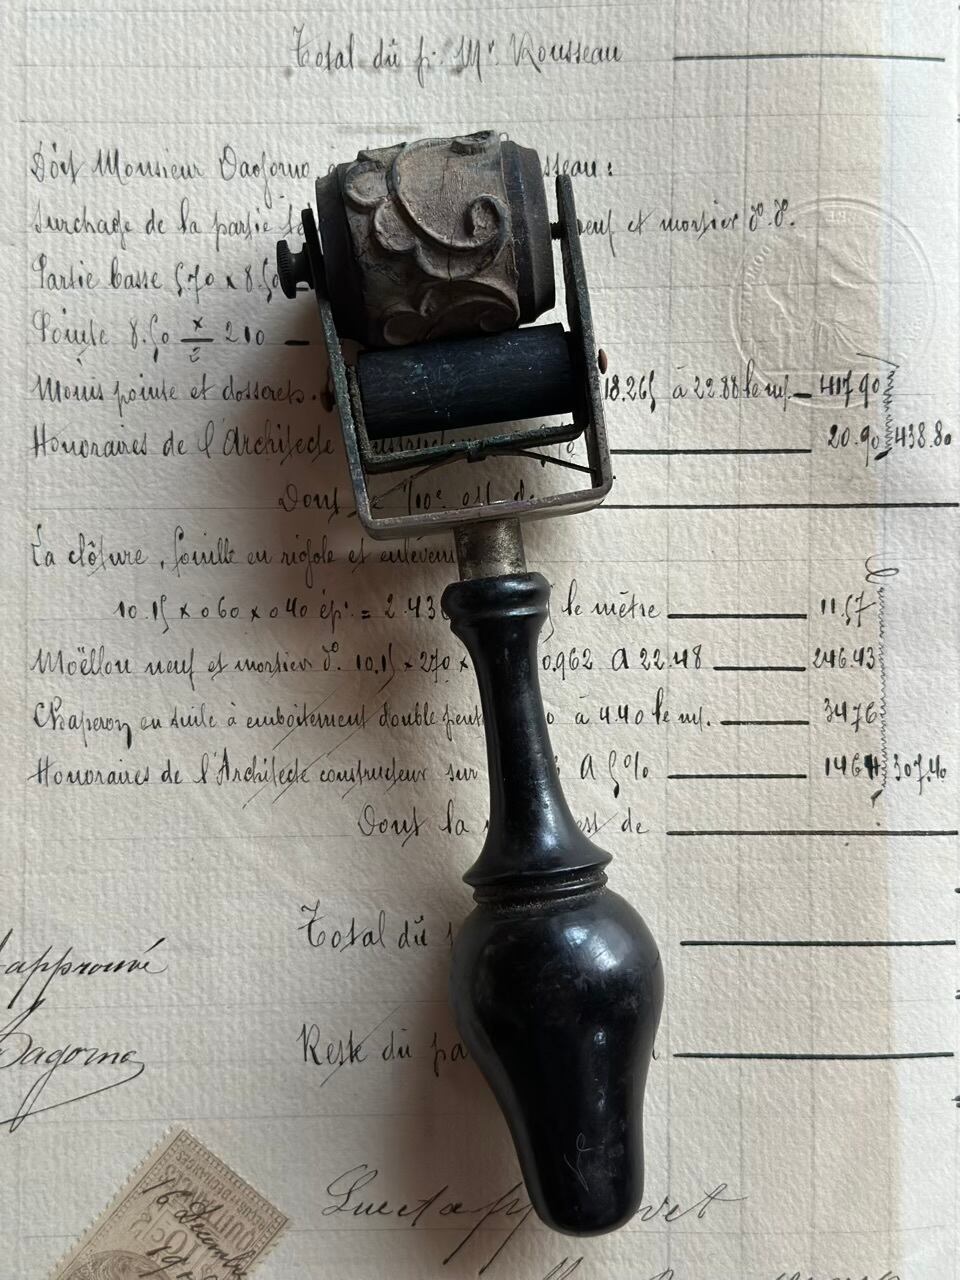 Total dû pr. Mr. Rousseau
Doit Monsieur Dagorno, à sseau :
Surchage de la partie neuf et mortier d°. d°.
Partie basse 570 x 8.50
Pointe 8.50 x 210
2
Moins pointe et dosserets. 18.265 à 22.88 le m. 417.90
Honoraires de l'Architecte 20.90 438.80
Dont est de
La clôture, fouille en rigole et enlèvem
10.15 x 0 60 x 0 40 ép: = 2.43 le mètre 11.57
Moëllon neuf et mortier d°. 10.15 x 270 x 0.962 A 22.48 246.43
Chaperon en tuile à emboitement double pent à 4.40 le m. 3476
Honoraires de l'Architecte constructeur sur A 5% 1464 307.40
Dont la est de
Total dû
approuvé
Dagorno
Reste dû pa
Lu et app